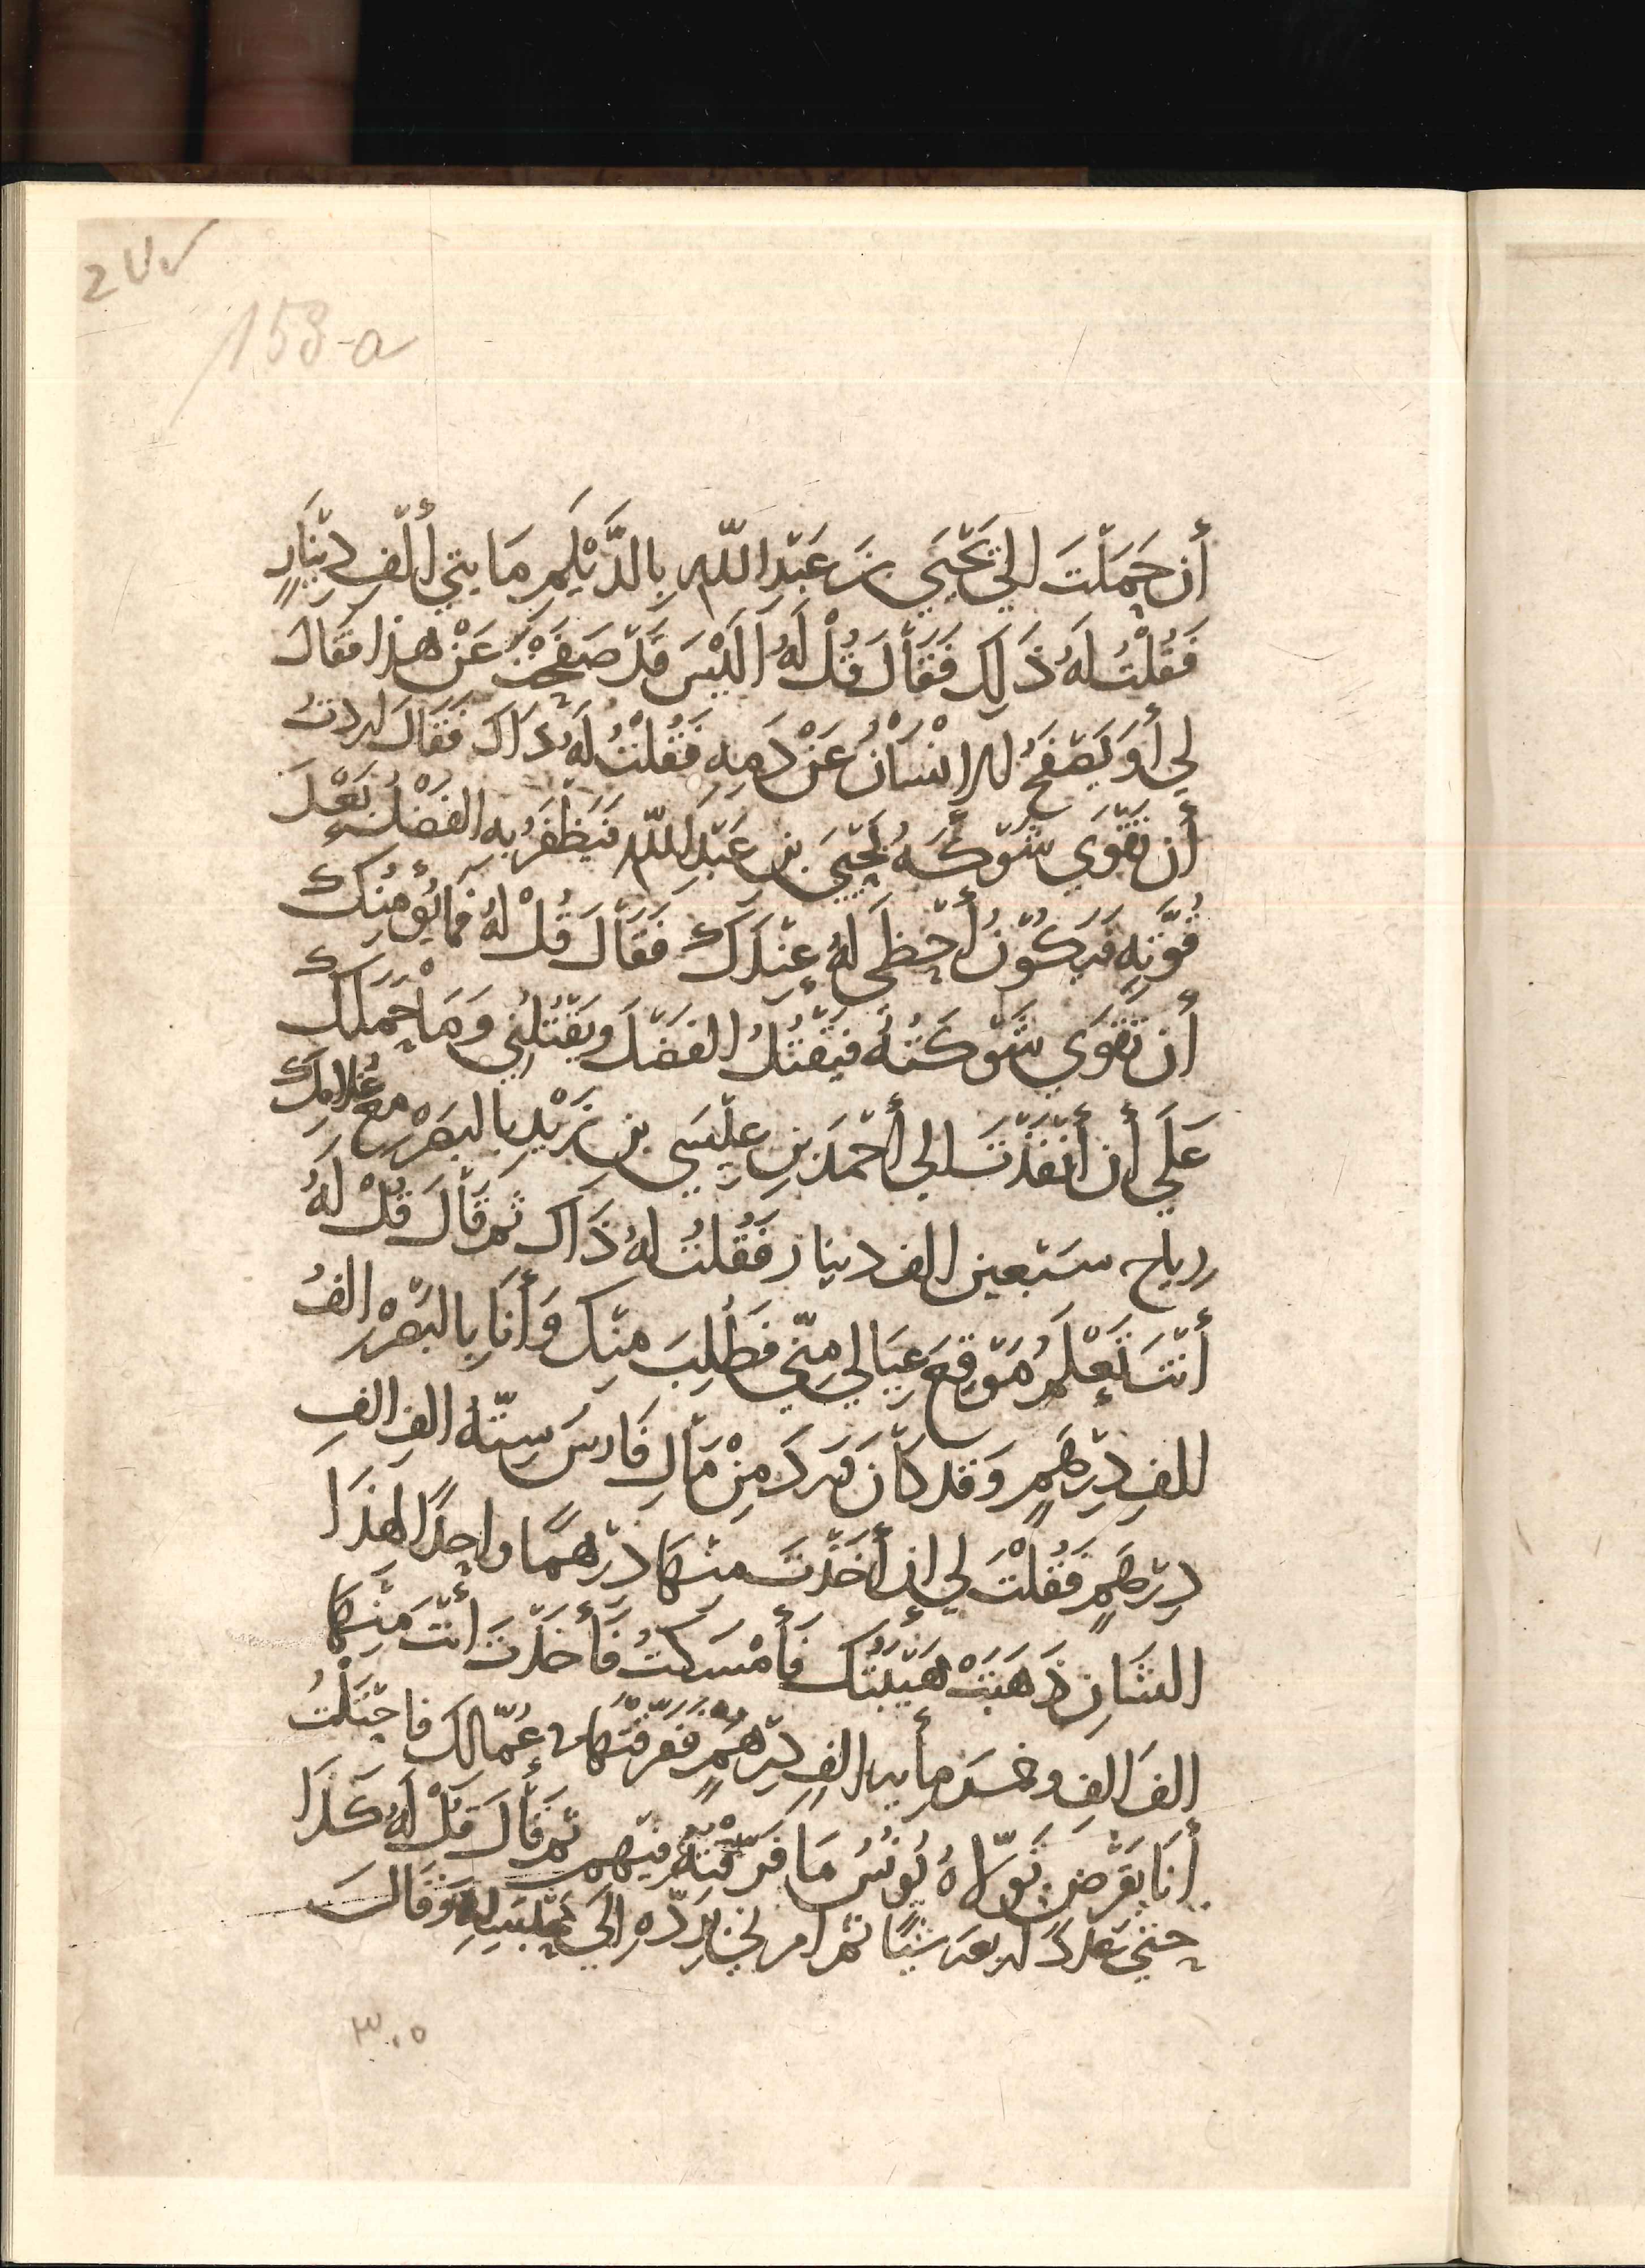 2 U.
153-a
أن حَمَلْتَ الي يَحْيَي بن عَبْدِ اللّه بِالدَّيْلَمِ مَايتي أَلْفِ دِيْنَارٍ
فَقُلْتُ لَهُ ذَلِكَ فَقَأْلَ قُلْ لَهُ اَلَيْسَ قَدْ صَفَحْتَ عَنْ هذا فقال
لي أَوَ يَصْفَحُ الإنْسَانُ عَنْ دَمِهِ فَقُلْتُ لَهُ ذَاكَ فَقَالَ اردتُ
أن تَقْوَي شَوْكَهُ يَحْيَى بن عَبْدِ اللّه فَيَظْفَرُ به الفَضْلُ بَعْدَ
قُوَّتِهِ فَيَكُوْنُ أَحْظَى لَهُ عِنْدَكَ فَقَأْلَ قُلْ لهُ فَمَا يُؤْمِنُكَ
أن تَقْوَي شَوْكَتُهُ فَيَقْتُلُ الفَضْلَ ويَقْتُلُنِي وَمَا حَمَلَكَ
عَلَي أن أَنْفَذْتَ الي أَحْمَدَ بنِ عِيْسَي بنِ زَيْدٍ بالبَصْره مع غُلامِكَ
رياح سَبْعين الف دينار فَقُلْتُ لهُ ذَاكَ ثم قَأْلَ قُلْ لَهُ
أَنْتَ تَعْلَمُ مَوْقِعَ عِيَالي مِنّي فَطُلِبَ مِنْكَ وَأَنَا بالبَصْره الفُ
الفِ دِرْهَمٍ وَقَد كَأْنَ وَرَدَ مِنْ مَأْلِ فَارسَ سِتّهُ الفِ الفِ
دِرْهَمٍ فَقُلْتَ لي ان أَخَذْتَ مِنْهَا دِرْهمًا واحِدًا لِهذَا
الشَأنِ ذَهَبَتْ هَيْبَتُكَ فَأَمْسَكتُ فَأَخَذْتَ أَنْتَ مِنْهَا
الفَ الفِ وخمسَ مأيه الفِ دِرْهَمٍ فَفَرَّقْتَهَا في عُمّالِكَ فاحْتَلْتُ
أَنَا بقَرْضٍ تَوَلّاهُ يُونُسُ مَا فَرَّقْتُهُ فيهم ثم قَأْلَ قُلْ لَهُ كَذَا
حتي عَدَّدَ اربعه شيًا ثم امرني بِرَدّهِ الَي مَحْبَسِهِ وَقَالَ
٣٠٥